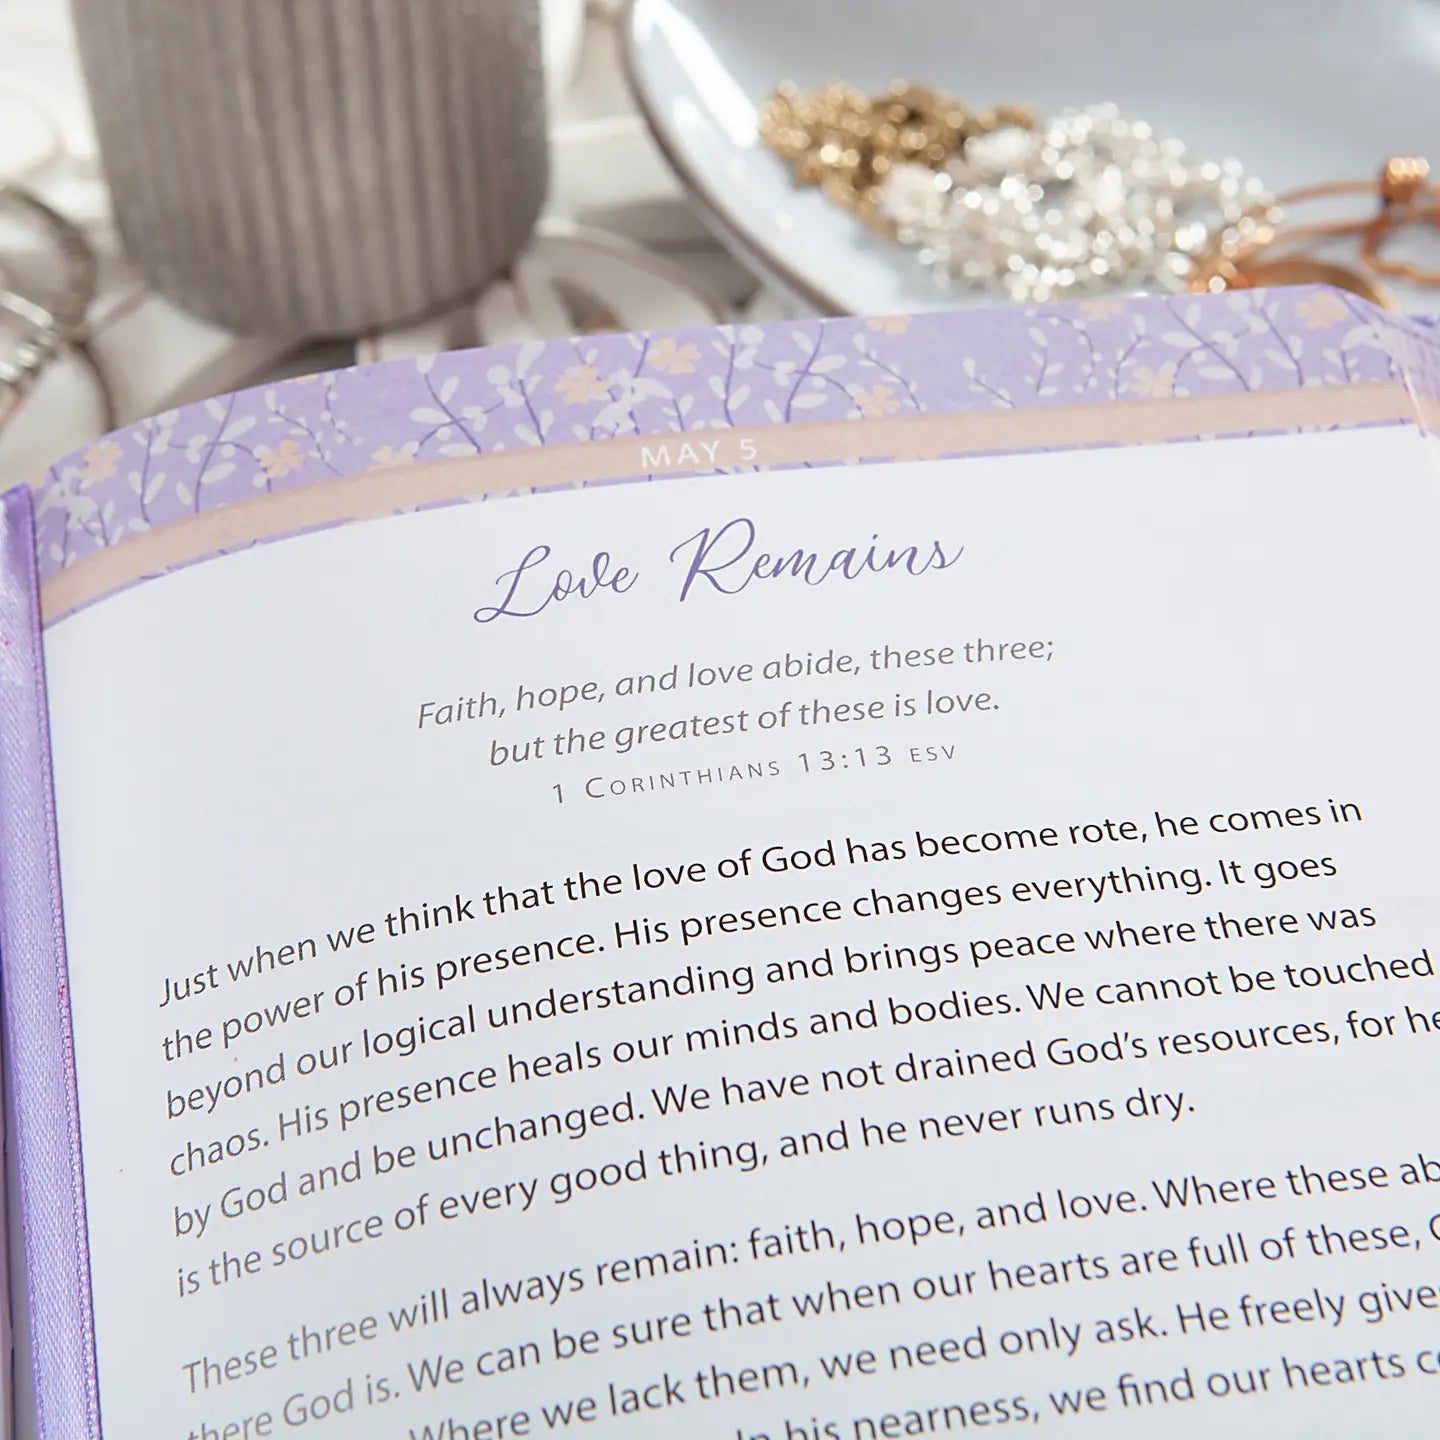 MAY 5
Love Remains
Faith, hope, and love abide, these three;
but the greatest of these is love.
1 CORINTHIANS 13:13 ESV
Just when we think that the love of God has become rote, he comes in
the power of his presence. His presence changes everything. It goes
beyond our logical understanding and brings peace where there was
chaos. His presence heals our minds and bodies. We cannot be touched
by God and be unchanged. We have not drained God's resources, for he
is the source of every good thing, and he never runs dry.
These three will always remain: faith, hope, and love. Where these
there God is. We can be sure that when our hearts are full of these,
Where we lack them, we need only ask. He freely
In his nearness, we find our hearts